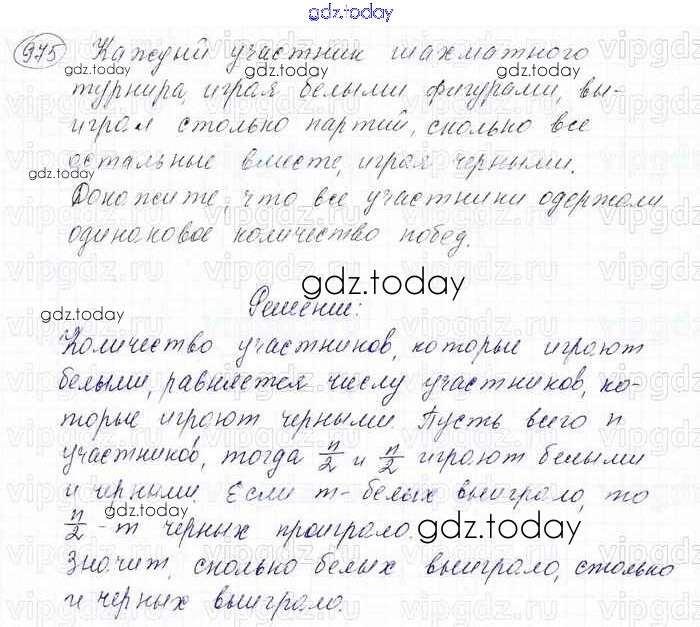 gdz.today
975 Каждый участник шахматного
турнира, играя белыми фигурами, вы-
играл столько партий, сколько все
остальные вместе, играя черными.
Докажите, что все участники одержали
одинаковое количество побед.
Решение:
Количество участников, которые играют
белыми, равняется числу участников, ко-
торые играют черными. Пусть всего n
участников, тогда n/2 и n/2 играют белыми
и черными. Если m - белых выиграло, то
n/2 - m черных проиграло.
Значит, сколько белых выиграло, столько
и черных выиграло.
gdz.today
gdz.today
gdz.today
gdz.today
gdz.today
gdz.today
gdz.today
gdz.today